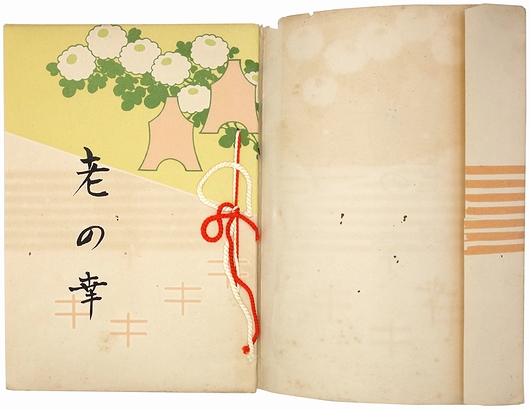 老の幸